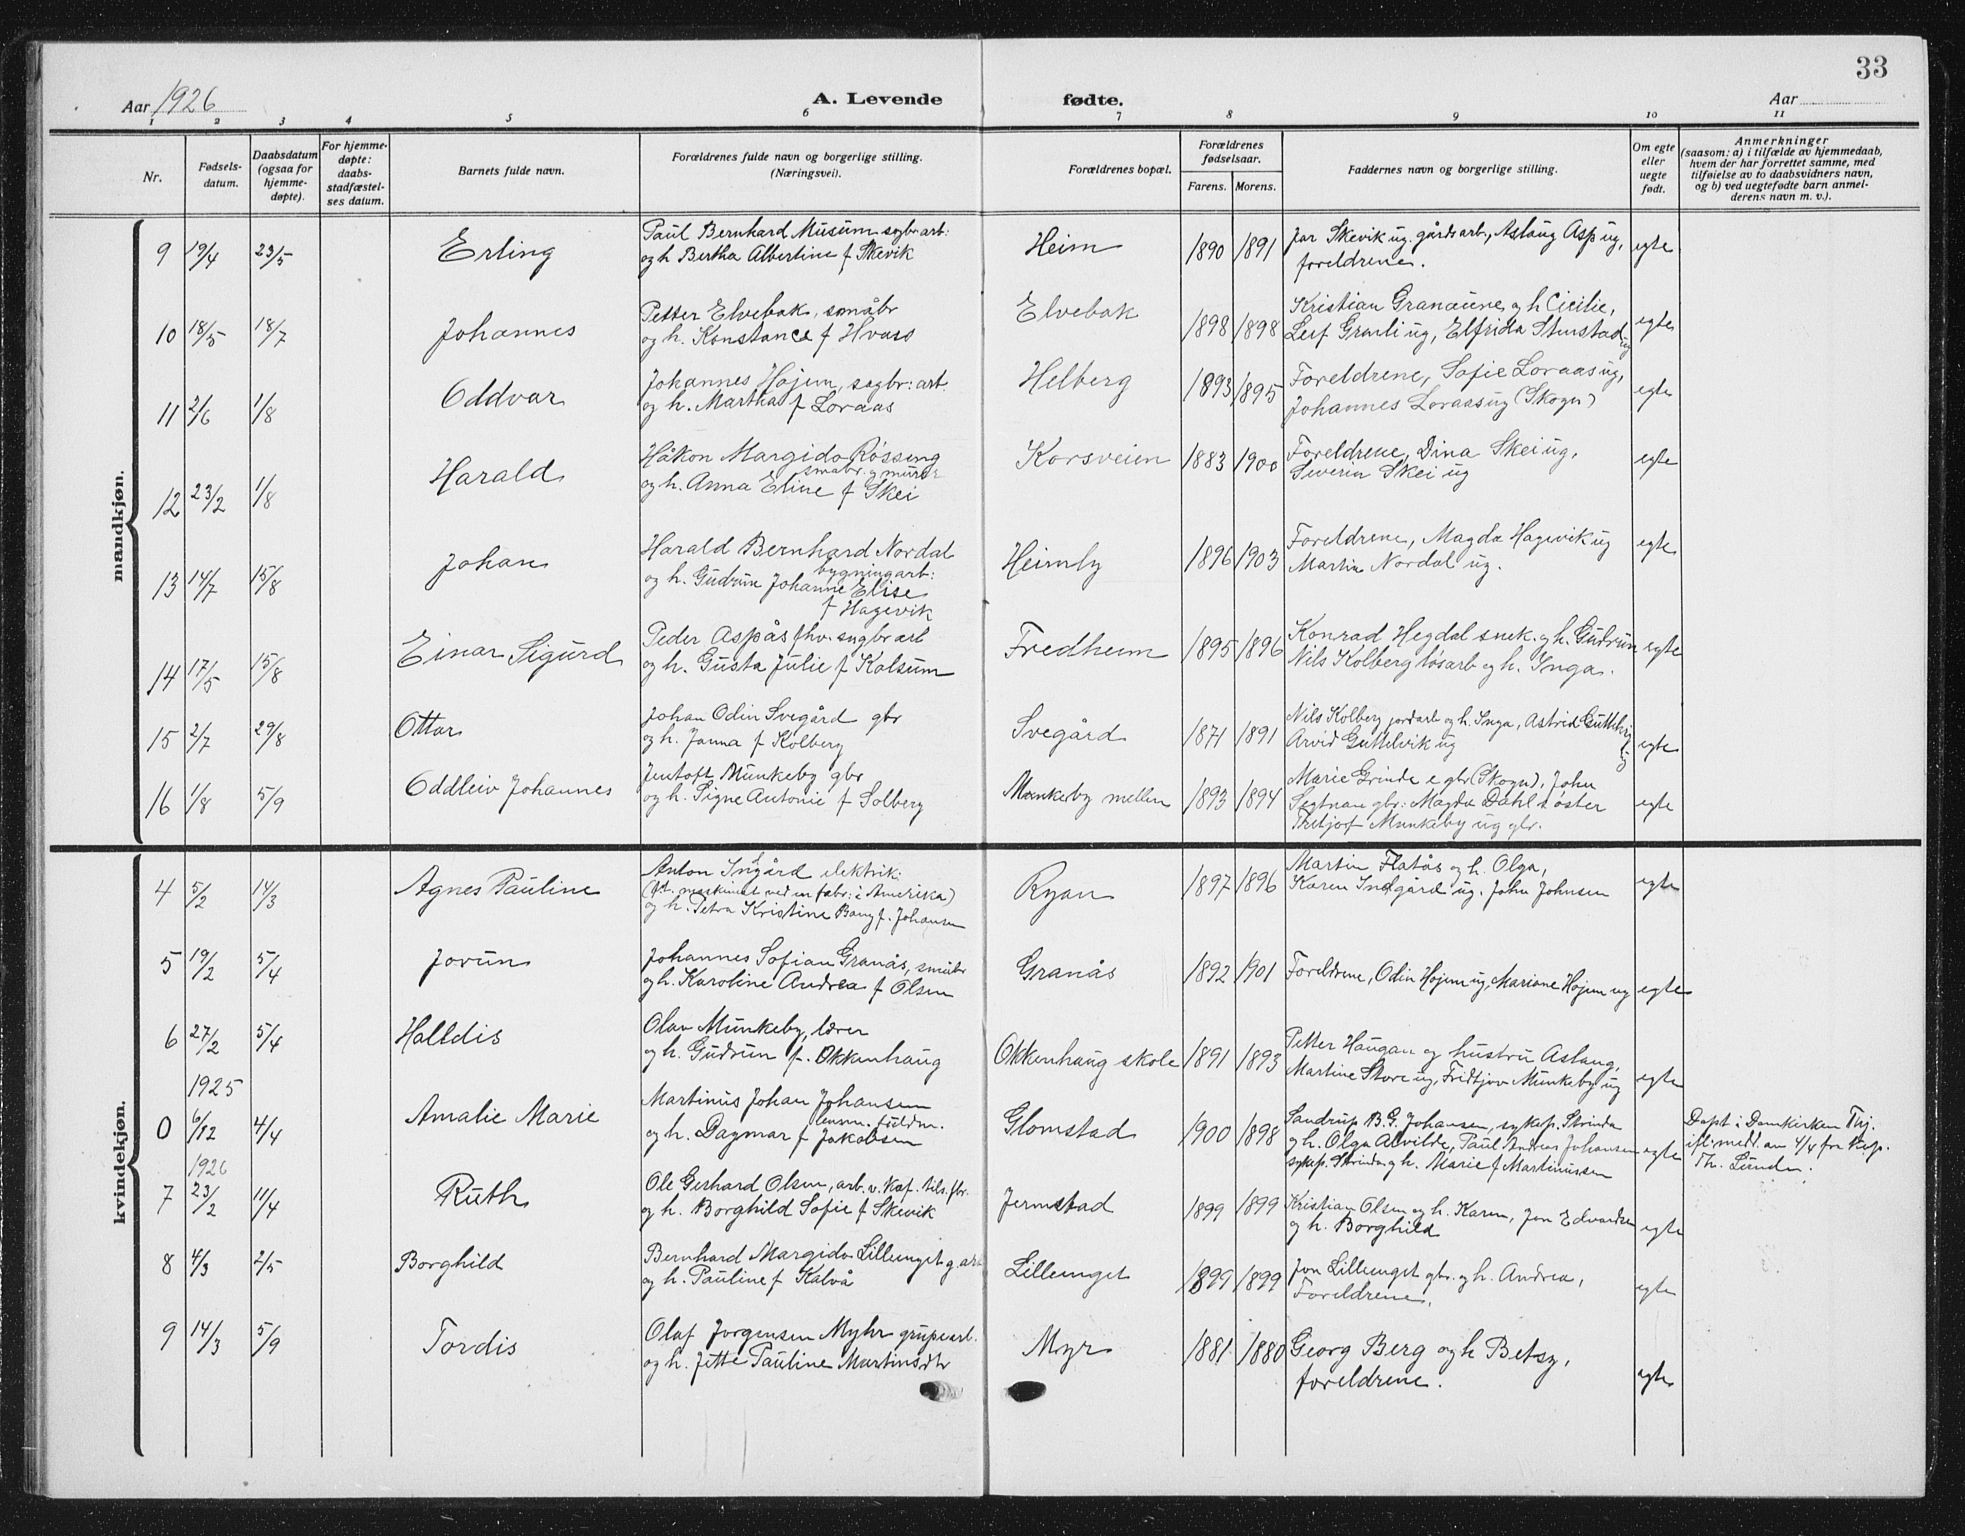 33
Aar 1926
A. Levende fødte.
Aar
1 2 3 4 5 6 7 8 9 10 11
Nr.
Fødsels-
datum.
Daabsdatum
(ogsaa for
hjemme-
døpte).
For hjemme-
døpte:
daabs-
stadfæstel-
ses datum.
Barnets fulde navn.
Forældrenes fulde navn og borgerlige stilling.
(Næringsvei).
Forældrenes bopæl.
Forældrenes
fødselsaar.
Farens. Morens.
Faddernes navn og borgerlige stilling.
Om egte
eller
uegte
født.
Anmerkninger
(saasom: a) i tilfælde av hjemmedaab,
hvem der har forrettet samme, med
tilføielse av to daabsvidners navn,
og b) ved uegtefødte barn anmel-
derens navn m. v.).
mandkjøn.
9 19/4 23/5 Erling
Paul Bernhard Musum sagbr arb:
og h Bertha Albertine f Skevik
Heim 1890 1891
Skevik ug. gårdsarb., Aslaug Asp ug,
foreldrene.
egte
10 18/5 18/7 Johannes
Petter Elvebak, småbr
og h. Konstance f Hvass
Elvebak 1898 1898
Kristian Granaune og h Cicilie,
Leif Granli ug, Elfrida Stenstad ug
egte
11 2/6 1/8 Oddvar
Johannes Hojem, sagbr: arb.
og h. Martha f Loraas
Helberg 1893 1895
Foreldrene, Sofie Loraas ug,
Johannes Loraas ug (Skogn)
egte
12 23/2 1/8 Harald
Håkon Margido Røssing
småbr. og murer
og h. Anna Eline f Skei
Korsveien 1883 1900
Foreldrene, Dina Skei ug,
Severin Skei ug
egte
13 14/7 15/8 Johan
Harald Bernhard Nordal
bygningarb:
og h. Gudrun Johanne Elise
f Hagevik
Heimly 1896 1903
Foreldrene, Magda Hagevik ug
Martin Nordal ug.
egte
14 17/5 15/8 Einar Sigurd
Peder Aspås fhv. sagbr arb
og h. Gusta Julie f Kolsum
Fredheim 1895 1896
Konrad Hegdal snek. og h. Gudrun
Nils Kolberg løsarb og h. Inga.
egte
15 2/7 29/8 Ottar
Johan Odin Svegård gbr
og h. Janna f Kolberg
Svegård 1871 1891
Nils Kolberg jordarb og h. Inga, Astrid Guttelvik
Arvid Guttelvik ug
egte
16 1/8 5/9 Oddleiv Johannes
Jentoft Munkeby gbr
og h. Signe Antonie f Solberg
Munkerby mellem 1893 1894
Marie Grinde e gbr (Skogn), John
Segtnan gbr: Magda Dahl
Fritjof Munkeby ug gbr.
egte
kvindekjøn.
4 5/2 14/3 Agnes Pauline
Anton Ingård elektrik:
(f.t. maskinist ved en fabr: i Amerika)
og h. Petra Kristine Bang f. Johansen
Ryan 1897 1896
Martin Flatås og h. Olga,
Karen Indgård ug. John Johnsen
egte
5 19/2 5/4 Jorun
Johannes Sofian Granås, småbr
og h. Karoline Andrea f Olsen
Granås 1892 1901
Foreldrene, Odin Hojem ug, Mariane Hojem ug
egte
6 27/2 5/4 Halldis
Olav Munkeby, lærer
og h. Gudrun f. Okkenhaug
Okkenhaug skole 1891 1893
Petter Haugan og hustru Aslaug,
Martine Skore ug, Fridtjov Munkeby ug
egte
1925
0 6/12 4/4 Amalie Marie
Martinus Johan Johansen
lensm. fuldm.
og h. Dagmar f Jakobsen
Glomstad 1900 1898
Sandrup B.G. Johansen, sykep. Strinda
og h. Olga Alvilde, Paul Andreas Johansen
sykep. Strinda og h. Marie f Martinussen
egte
Døpt i Domkirken Thj.
ifl. medd. av 4/4 fra
Th. Lunde.
1926
7 23/2 11/4 Ruth
Ole Gerhard Olsen, arb. v.
og h. Borghild Sofie f Skevik
Jermstad 1899 1899
Kristian Olsen og h. Karen, Jon Edvardsen
og h. Borghild
egte
8 4/3 2/5 Borghild
Bernhard Margido Lillemget g.arb
og h. Pauline f Kalvå
Lillemget 1899 1899
Jon Lillemget gbr. og h. Andrea,
Foreldrene,
egte
9 14/3 5/9 Tordis
Olaf Jorgensen Myhr grupearb.
og h. Jette Pauline Martinsdtr
Myr 1881 1880
Georg Berg og h Betsy,
foreldrene.
egte